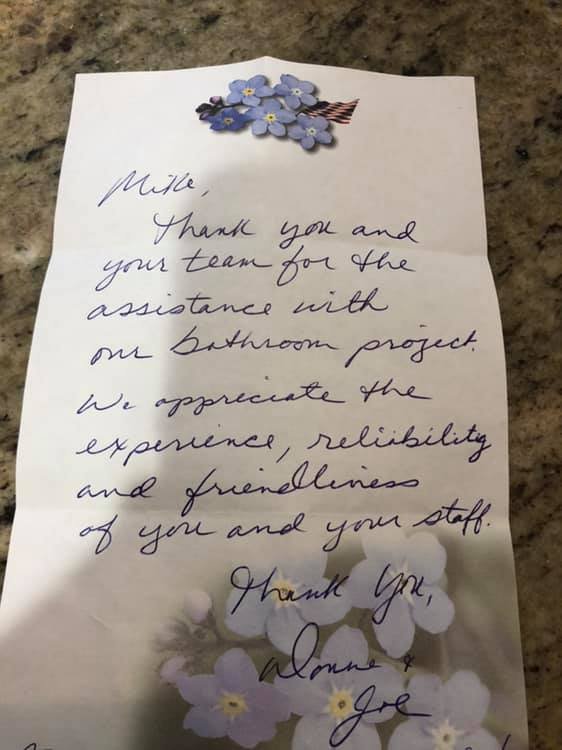 Mike,
Thank you and
your team for the
assistance with
our bathroom project.
We appreciate the
experience, reliability
and friendliness
of you and your staff.
Thank You,
&
Joe